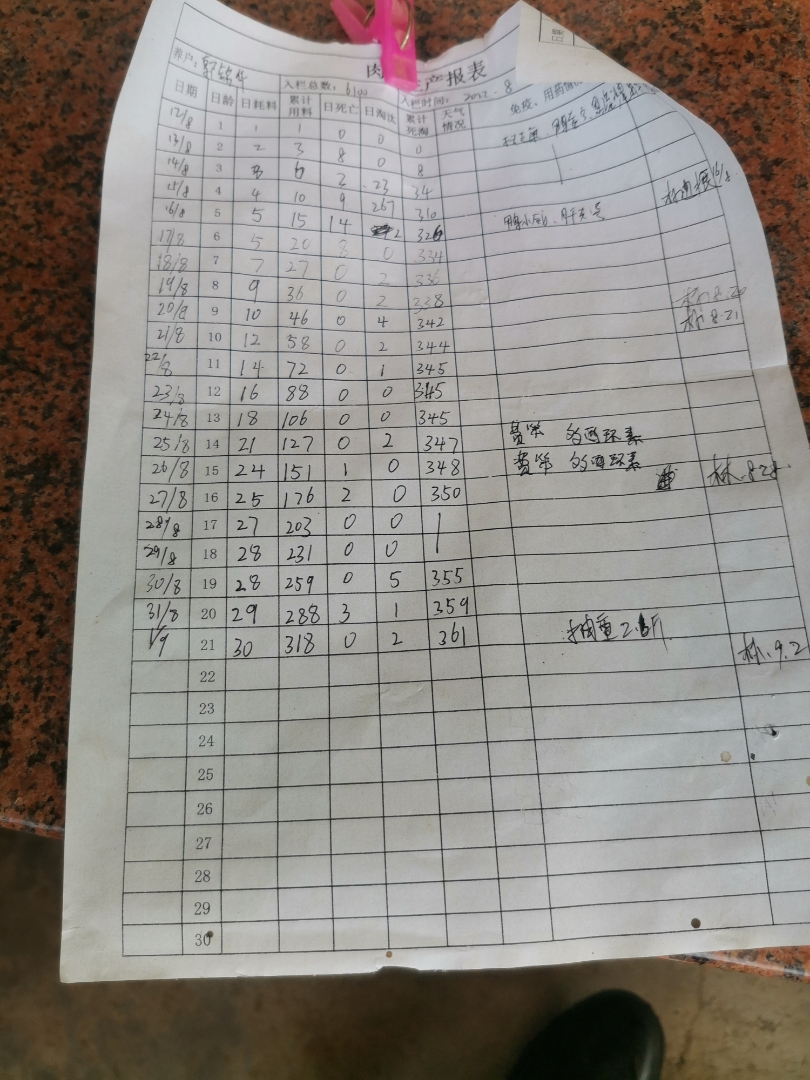 肉 产报表
养户: 入栏总数: 6100 入栏时间: 2022.8
日期 日龄 日耗料 累计用料 日死亡 日淘汰 累计死淘 天气情况 免疫、用药情
12/8 1 1 1 0 0 0
13/8 2 2 3 8 0 8
14/8 3 3 6 2 23 34
15/8 4 4 10 9 267 310
16/8 5 5 15 14 2 326
17/8 6 5 20 8 0 334
18/8 7 7 27 0 2 336
19/8 8 9 36 0 2 338
20/8 9 10 46 0 4 342 林 8.21
21/8 10 12 58 0 2 344
22/8 11 14 72 0 1 345
23/8 12 16 88 0 0 345
24/8 13 18 106 0 0 345
25/8 14 21 127 0 2 347 西环素
26/8 15 24 151 1 0 348 西环素 林.8.28
27/8 16 25 176 2 0 350
28/8 17 27 203 0 0
29/8 18 28 231 0 0
30/8 19 28 259 0 5 355
31/8 20 29 288 3 1 359
1/9 21 30 318 0 2 361 抽重2. 斤 林.9.2
22
23
24
25
26
27
28
29
30